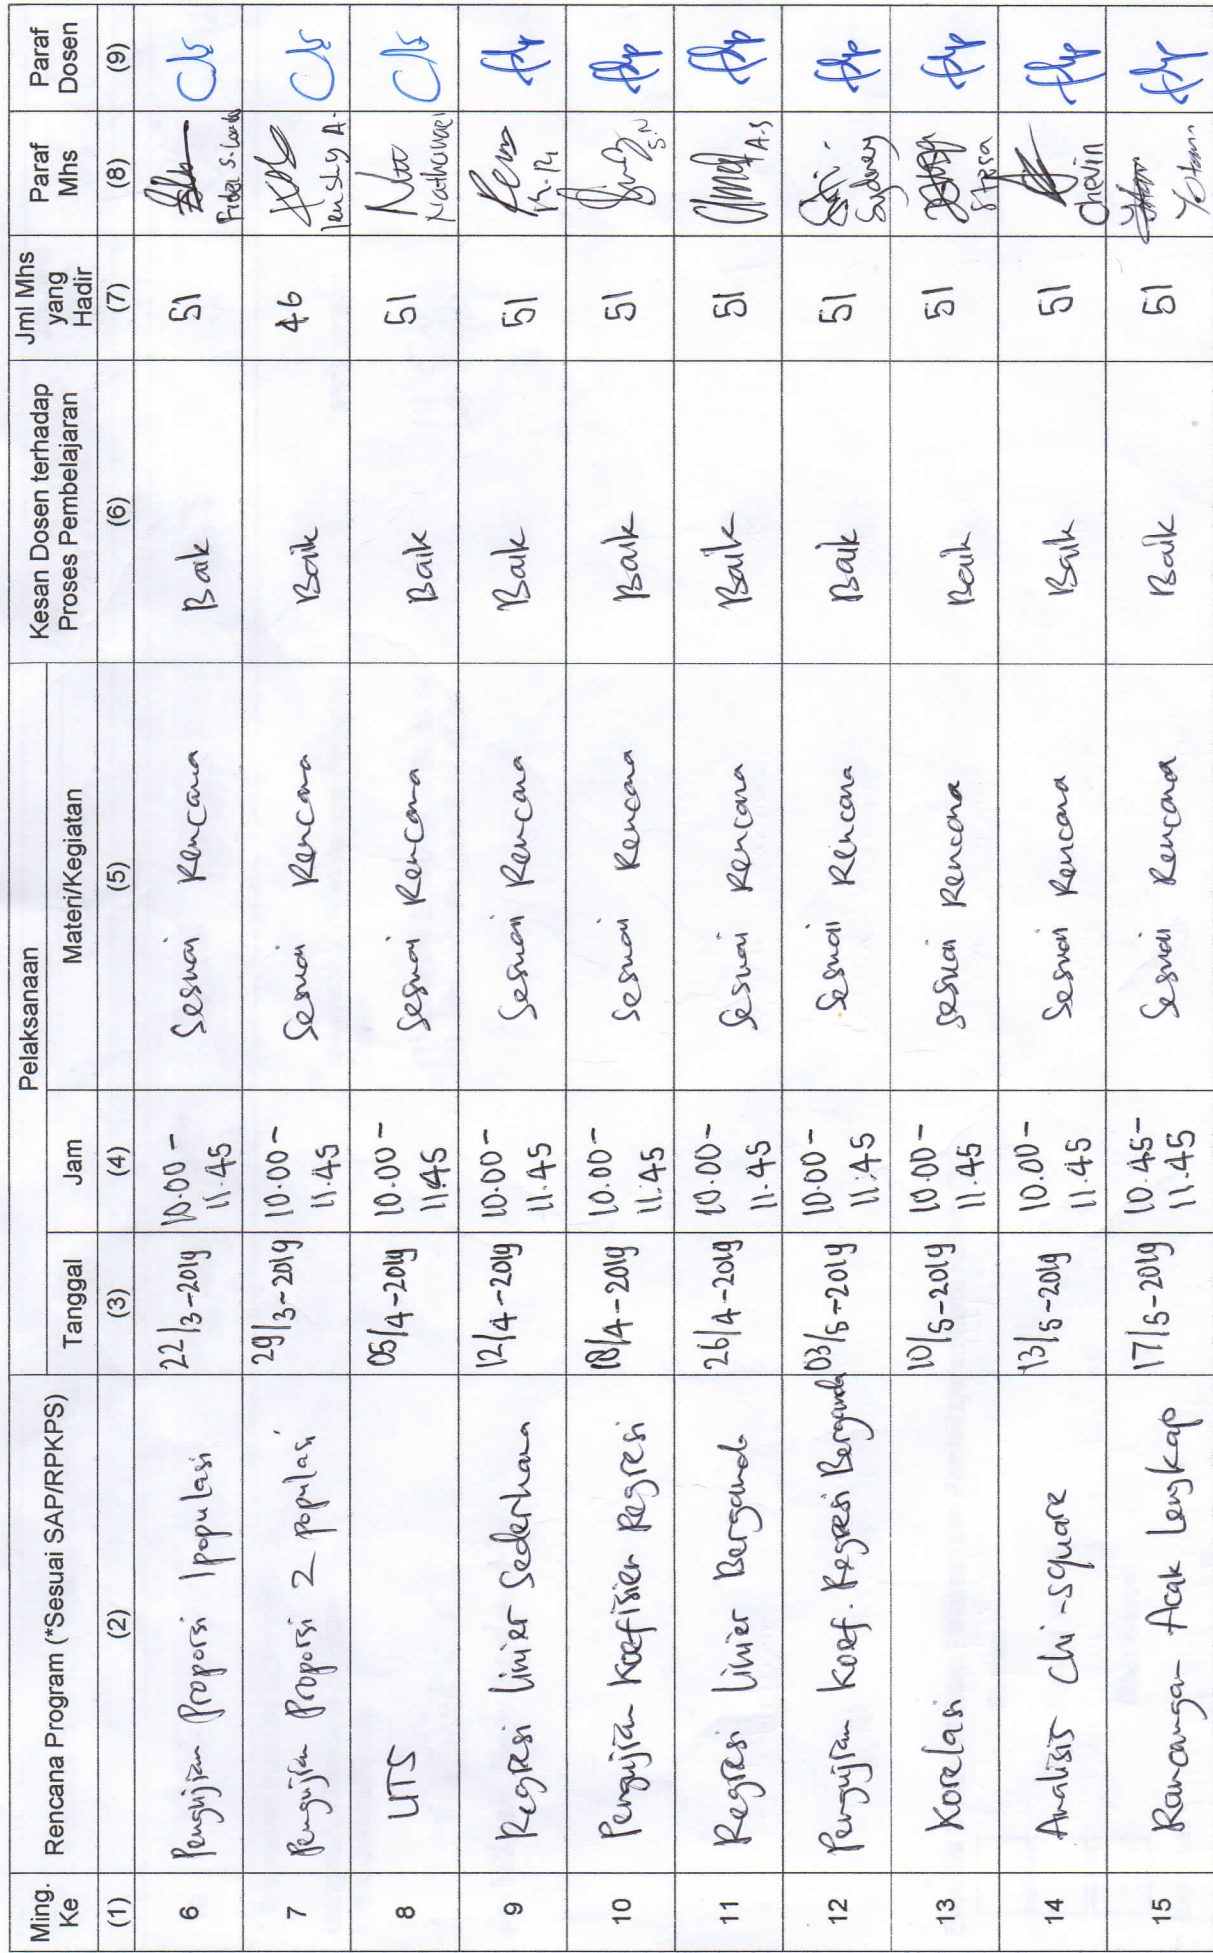 Ming. Ke | Rencana Program (*Sesuai SAP/RPKPS) | Pelaksanaan | Kesan Dosen terhadap Proses Pembelajaran | Jml Mhs yang Hadir | Paraf Mhs | Paraf Dosen
Tanggal | Jam | Materi/Kegiatan
(1) | (2) | (3) | (4) | (5) | (6) | (7) | (8) | (9)
6 | Pengujian Proporsi 1 populasi | 22/3-2019 | 10.00-11.45 | Sesuai Rencana | Baik | 51
7 | Pengujian Proporsi 2 populasi | 29/3-2019 | 10.00-11.45 | Sesuai Rencana | Baik | 46
8 | UTS | 05/4-2019 | 10.00-11.45 | Sesuai Rencana | Baik | 51 | Nathanael
9 | Regresi Linier Sederhana | 12/4-2019 | 10.00-11.45 | Sesuai Rencana | Baik | 51
10 | Pengujian Koefisien Regresi | 18/4-2019 | 10.00-11.45 | Sesuai Rencana | Baik | 51 | S.N
11 | Regresi Linier Berganda | 26/4-2019 | 10.00-11.45 | Sesuai Rencana | Baik | 51 | A.S
12 | Pengujian Koef. Regresi Berganda | 03/5-2019 | 10.00-11.45 | Sesuai Rencana | Baik | 51 | Sydney
13 | Korelasi | 10/5-2019 | 10.00-11.45 | Sesuai Rencana | Baik | 51
14 | Analisis Chi-square | 13/5-2019 | 10.00-11.45 | Sesuai Rencana | Baik | 51 | Chevin
15 | Rancangan Acak Lengkap | 17/5-2019 | 10.45-11.45 | Sesuai Rencana | Baik | 51 | Yotam